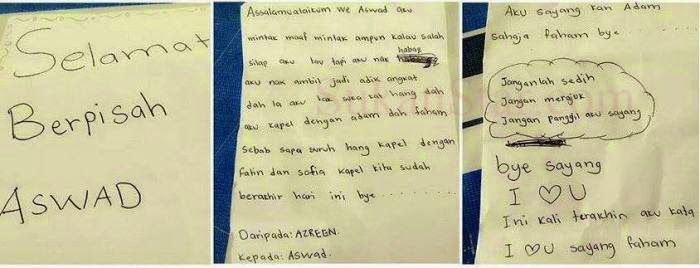 Selamat
Berpisah
ASWAD
Assalamualaikum We Aswad aku
mintak maaf mintak ampun kalau salah
silap aku lau tapi aku nak habaq
aku nak ambil jadi adik angkat
dah la aku tak suka kat hang dah
aku kapel dengan adam dah faham
sebab sapa suruh hang kapel dengan
fatin dan sofia kapel kita sudah
berakhir hari ini bye..........
Daripada: AZREEN.
Kepada: ASwad.
AKu sayang kan Adam
sahaja faham bye .......
Janganlah sedih
Jangan merajuk
Jangan panggil aku sayang
bye sayang
I ♡ U
Ini kali terakhir aku kata
I ♡ U sayang faham